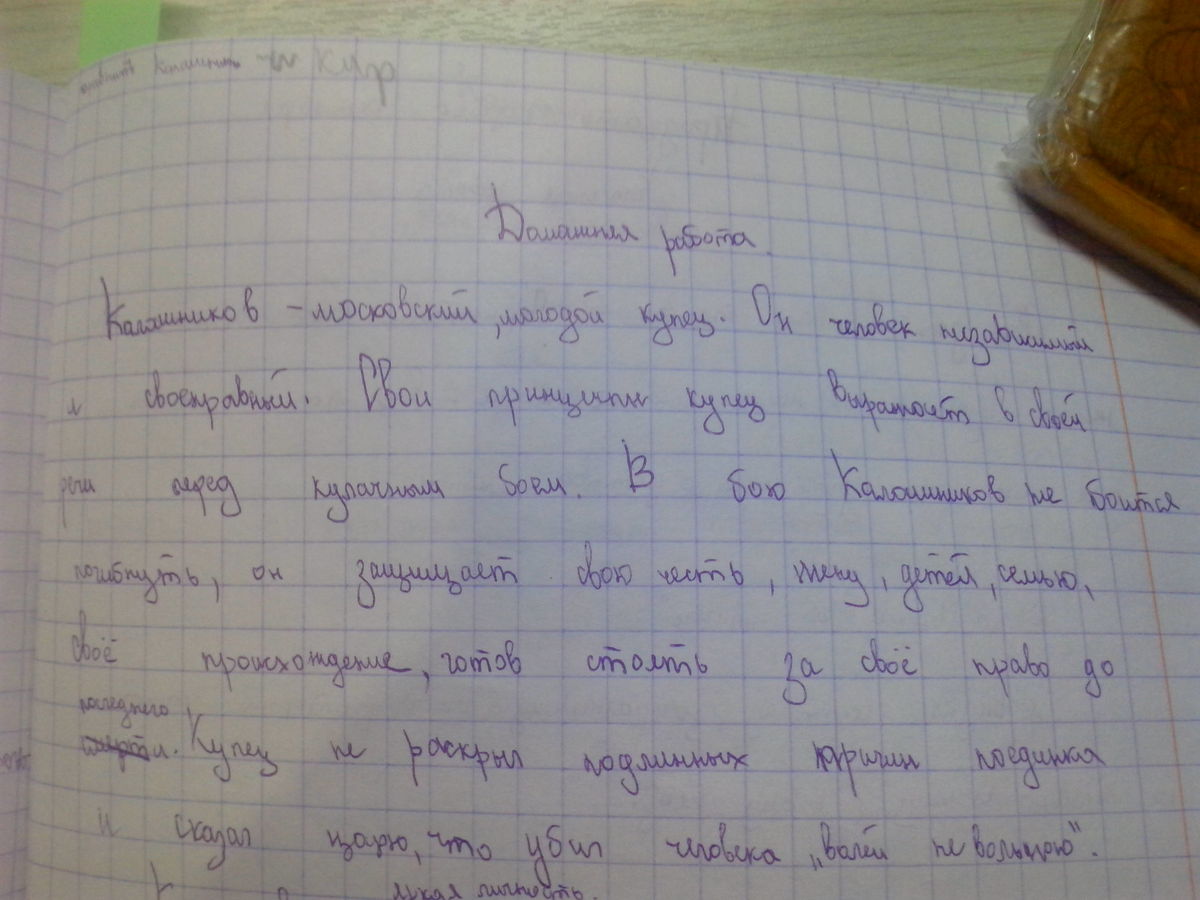 Домашняя работа.
Калашников – московский, молодой купец. Он человек независимый
и своенравный. Свои принципы купец выражает в своей
речи перед кулачным боем. В бою Калашников не боится
погибнуть, он защищает свою честь, жену, детей, семью,
своё происхождение, готов стоять за своё право до
последнего
смерти. Купец не раскрыл подлинных причин поединка
и сказал царю, что убил человека „волей не вольною".
личность.